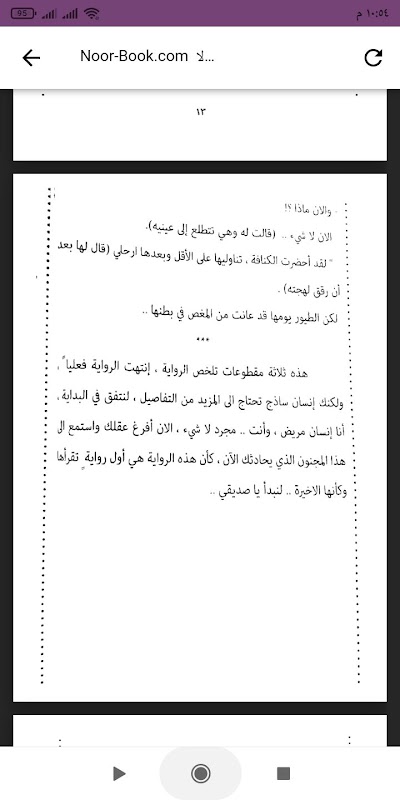 95
١٠:٥٤ م
Noor-Book.com لا...
١٣
. والان ماذا ؟!
الان لا شيء .. (قالت له وهي تتطلع إلى عينيه).
" لقد أحضرت الكنافة ، تناوليها على الأقل وبعدها ارحلي (قال لها بعد
أن رقق لهجته) .
لكن الطيور يومها قد عانت من المغص في بطنها ..
***
هذه ثلاثة مقطوعات تلخص الرواية ، إنتهت الرواية فعلياً ،
ولكنك إنسان ساذج تحتاج الى المزيد من التفاصيل ، لنتفق في البداية ،
أنا إنسان مريض ، وأنت .. مجرد لا شيء ، الان أفرغ عقلك واستمع الى
هذا المجنون الذي يحادثك الآن ، كأن هذه الرواية هي أول روايةٍ تقرأها
وكأنها الاخيرة .. لنبدأ يا صديقي ..